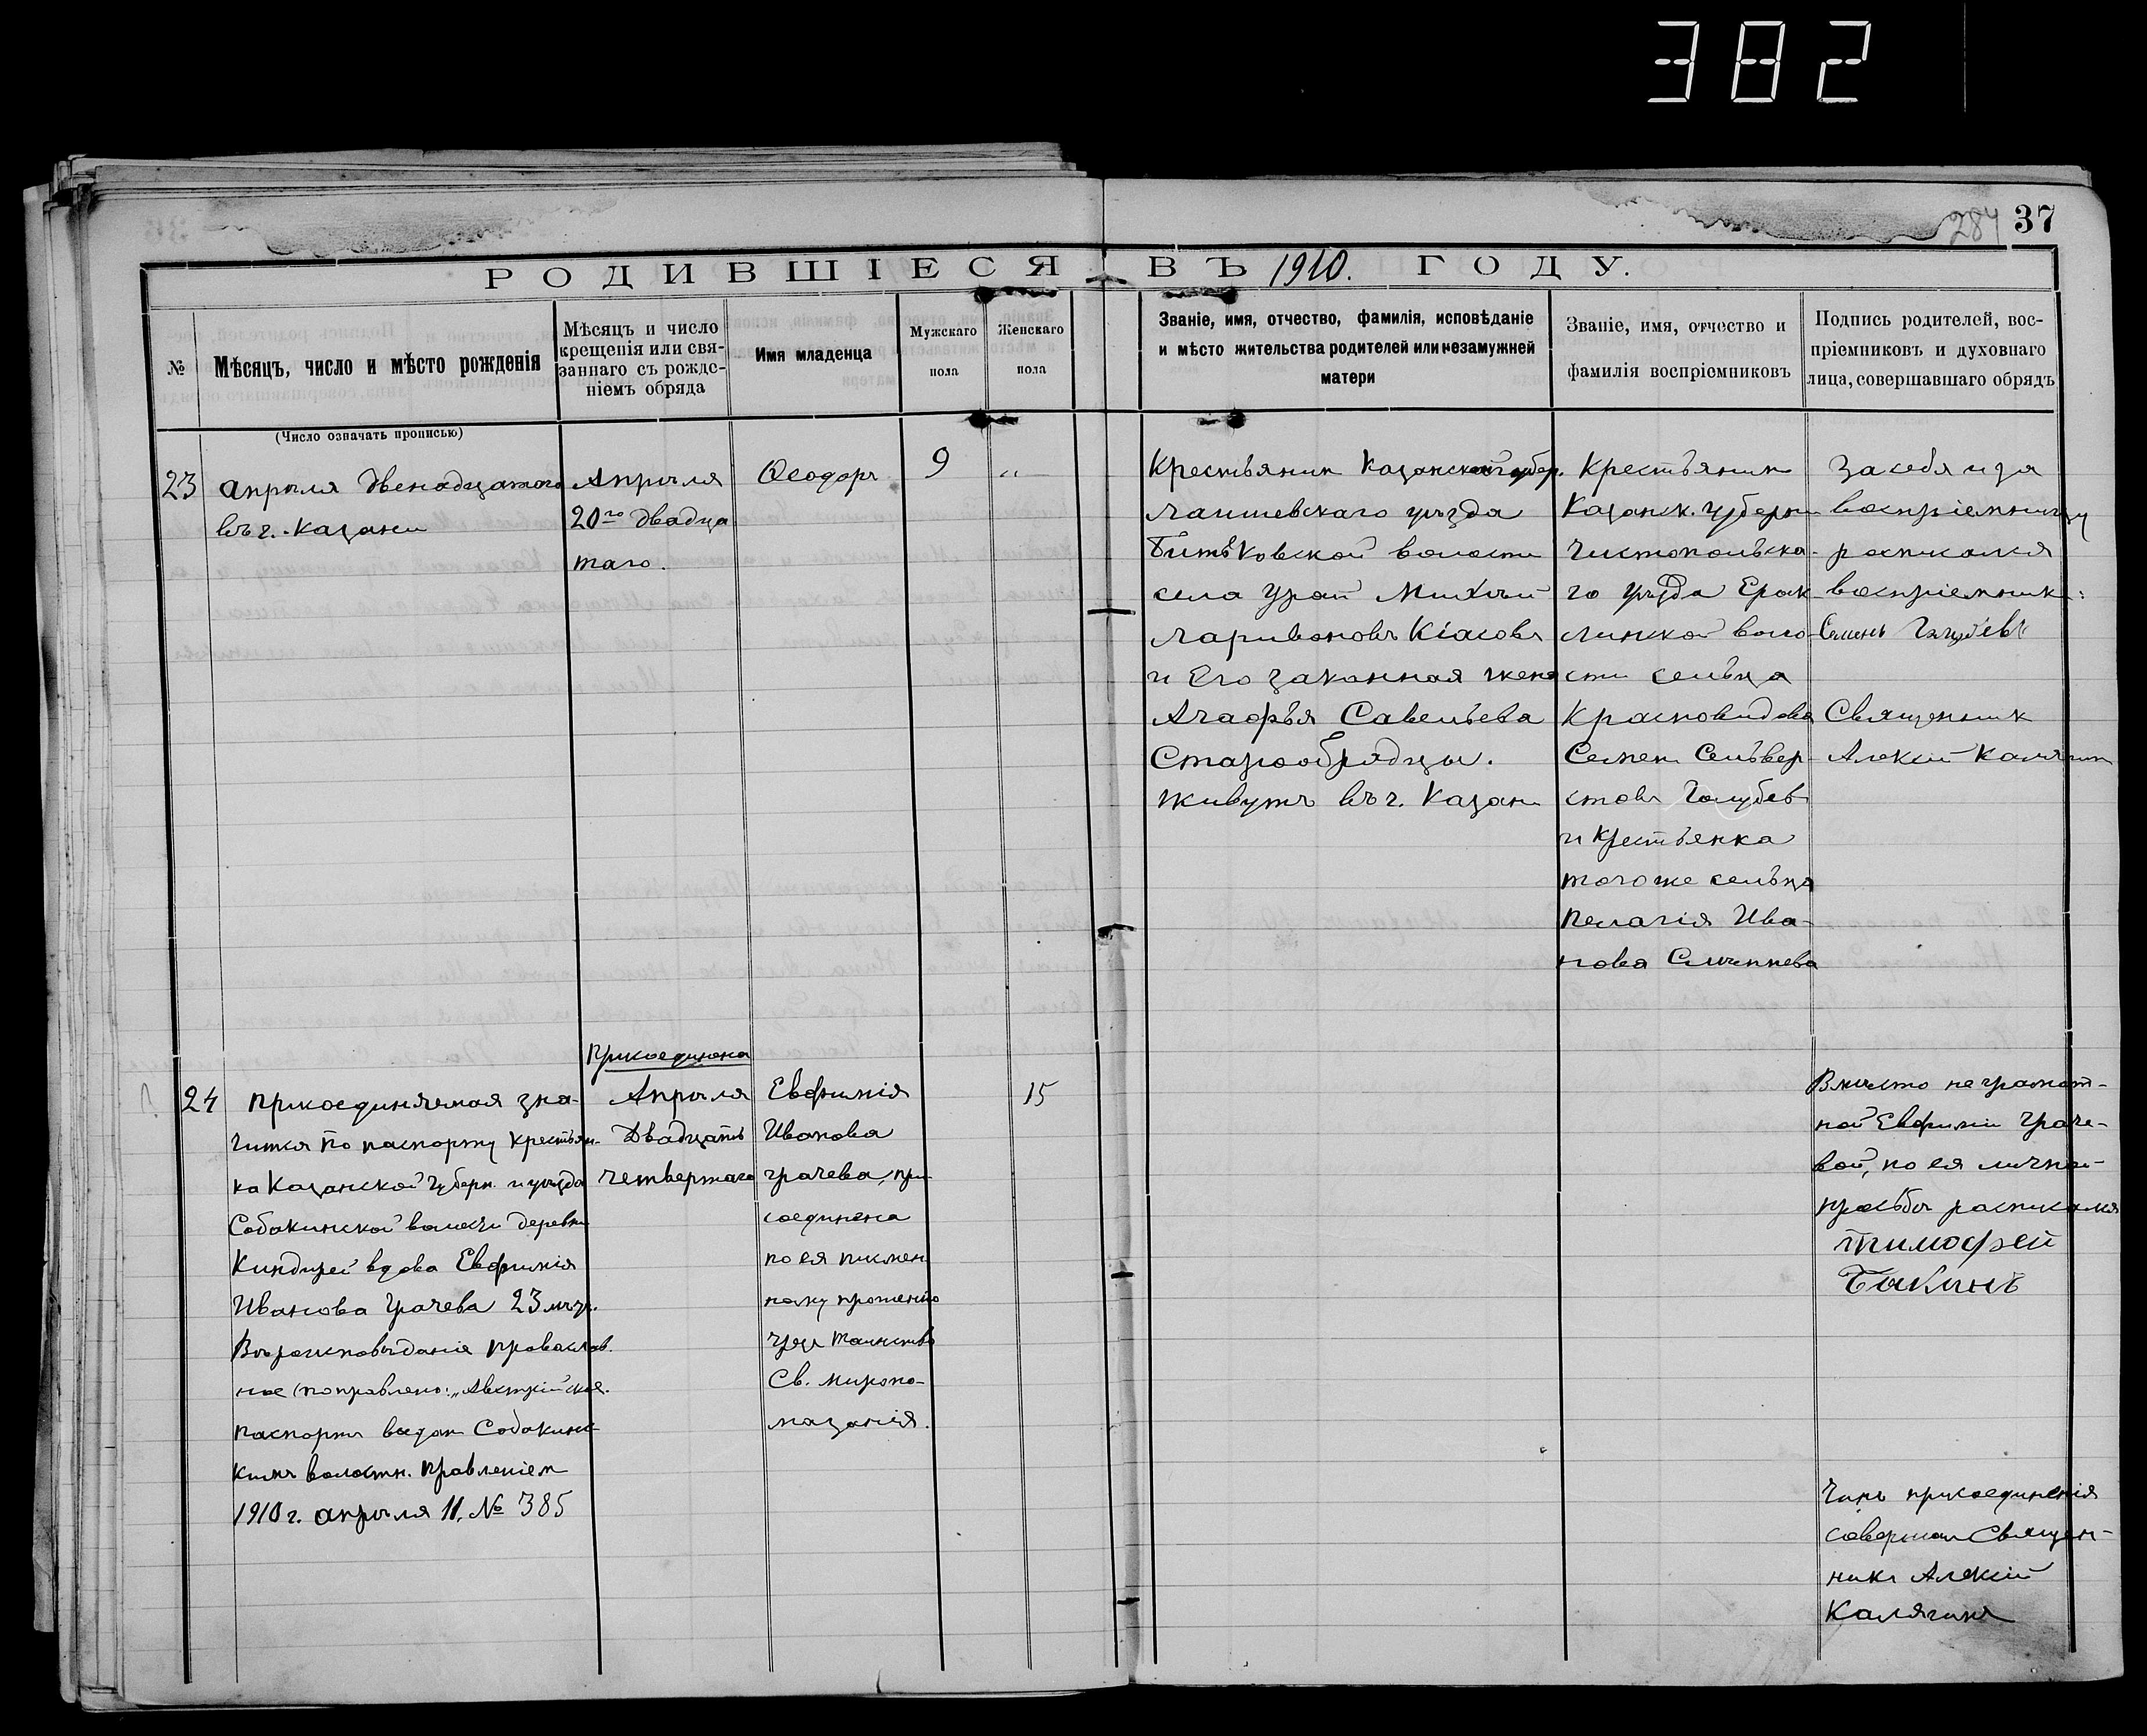 382
284 37
РОДИВШІЕСЯ ВЪ 1910. ГОДУ.
№
Мѣсяцъ, число и мѣсто рожденія
Мѣсяцъ и число
крещенія или свя-
заннаго съ рожде-
ніемъ обряда
Имя младенца
Мужскаго
пола
Женскаго
пола
Званіе, имя, отчество, фамилія, исповѣданіе
и мѣсто жительства родителей или незамужней
матери
Званіе, имя, отчество и
фамилія воспріемниковъ
Подпись родителей, вос-
пріемниковъ и духовнаго
лица, совершавшаго обрядъ
(Число означать прописью)
23
Апрѣля двенадцатого
въ г. Казани
Апрѣля
20го двадца
таго.
Ѳеодоръ
9
„
Крестьянин Казанской губер.
Лаишевскаго уѣзда
волости
села Михѣй
Ларивоновъ
и Его законная жена
Агафья Савельева
Старообрядцы.
Живутъ въ г. Казани
Крестьянин
Казанск. Губерн
Чистопольска-
го уѣзда Ерык-
линской воло-
сти сельца
Красновидова
Семен Сельвер-
стовъ Голубев
и Крестьянка
того же сельца
Пелагія Ива-
нова
За себя и за
воспріемницу
росписался
воспріемник:
Семенъ Голубевъ
Священник
Алексій Калягин
24
присоединяемая зна-
чится по паспорту крестьян-
ка Казанской Губерн. и уѣзда
Собакинской волости деревни
Киндирей вдова Евфимія
Иванова Грачева 23 лѣтъ.
Вѣроисповѣданія православ.
ное (поправлено: „Австрійское.
паспортъ выдан Собакинс-
кимъ волостн. правленіем
1910 г. апрѣля 11. № 385
присоединена
Апрѣля
Двадцать
четвертаго
Евфимія
Иванова
Грачева, при-
соединена
по ея писмен
ному прошенію
чрез таинство
Св. миропо-
мазанія.
15
Вмѣсто неграмот-
ной Евфиміи Граче-
вой, по ея личной
просьбѣ росписался
Тимофей
Бакинъ
Чинъ присоединенія
совершал Священ-
никъ Алексій
Калягинъ